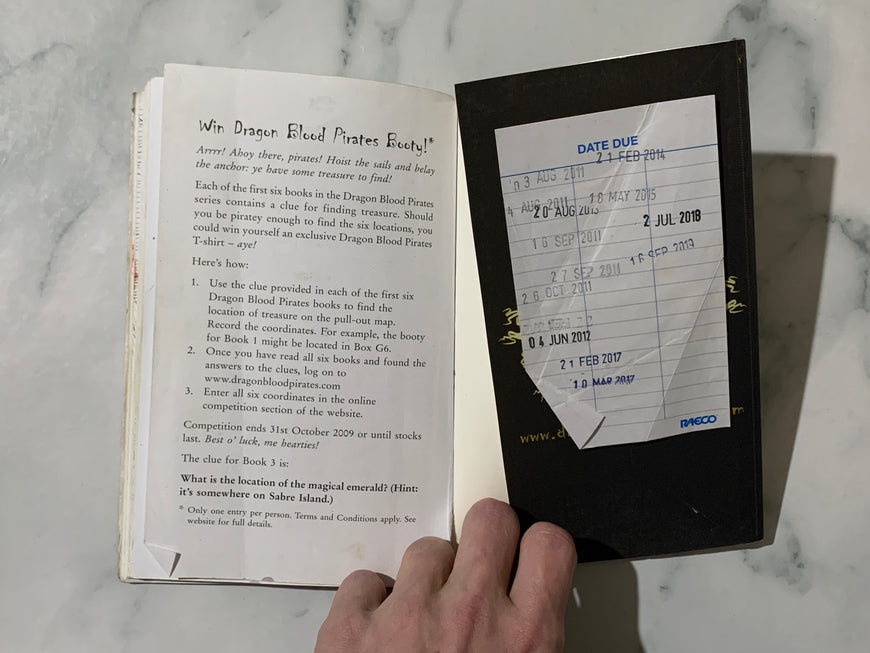 Win Dragon Blood Pirates Booty!*
Arrrr! Ahoy there, pirates! Hoist the sails and belay
the anchor: ye have some treasure to find!
Each of the first six books in the Dragon Blood Pirates
series contains a clue for finding treasure. Should
you be piratey enough to find the six locations, you
could win yourself an exclusive Dragon Blood Pirates
T-shirt – aye!
Here's how:
1. Use the clue provided in each of the first six
Dragon Blood Pirates books to find the
location of treasure on the pull-out map.
Record the coordinates. For example, the booty
for Book 1 might be located in Box G6.
2. Once you have read all six books and found the
answers to the clues, log on to
www.dragonbloodpirates.com
3. Enter all six coordinates in the online
competition section of the website.
Competition ends 31st October 2009 or until stocks
last. Best o' luck, me hearties!
The clue for Book 3 is:
What is the location of the magical emerald? (Hint:
it's somewhere on Sabre Island.)
* Only one entry per person. Terms and Conditions apply. See
website for full details.
DATE DUE
21 FEB 2014
3 AUG 2011
18 MAY 2015
AUG 2011
20 AUG
2 JUL 2018
16 SEP 2011
16 SEP 2019
27 SEP 2011
26 OCT 2011
04 JUN 2012
21 FEB 2017
10 MAR 2017
RAECO
www.